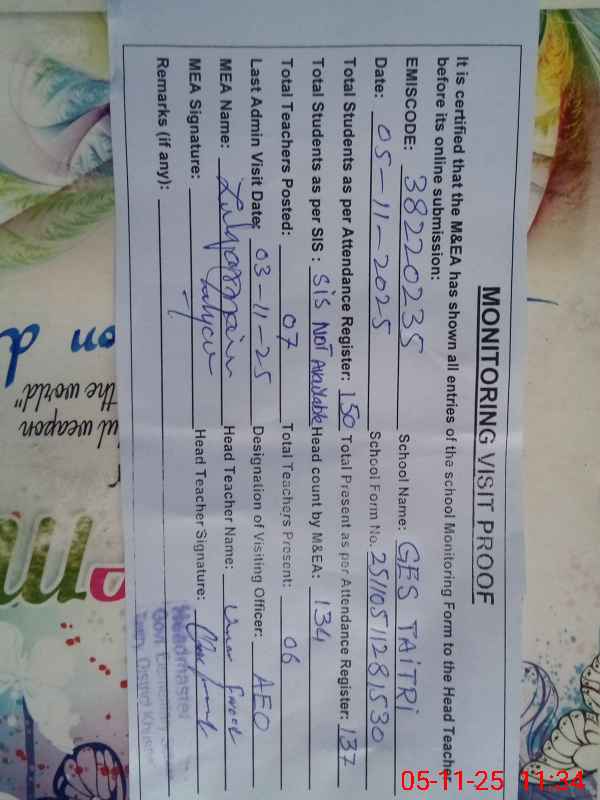 MONITORING VISIT PROOF
It is certified that the M&EA has shown all entries of the school Monitoring Form to the Head Teacher
before its online submission:
EMISCODE: 38220235 School Name: GES TAITRI
Date: 05-11-2025 School Form No. 25110511281530
Total Students as per Attendance Register: 150 Total Present as per Attendance Register: 137
Total Students as per SIS : SiS NOT Available Head count by M&EA: 134
Total Teachers Posted: 07 Total Teachers Present: 06
Last Admin Visit Date: 03-11-25 Designation of Visiting Officer: AEO
MEA Name: Head Teacher Name:
MEA Signature: Head Teacher Signature:
Remarks (if any):
Headmaster
the world"
ul weapon
on d
05-11-25 11:34